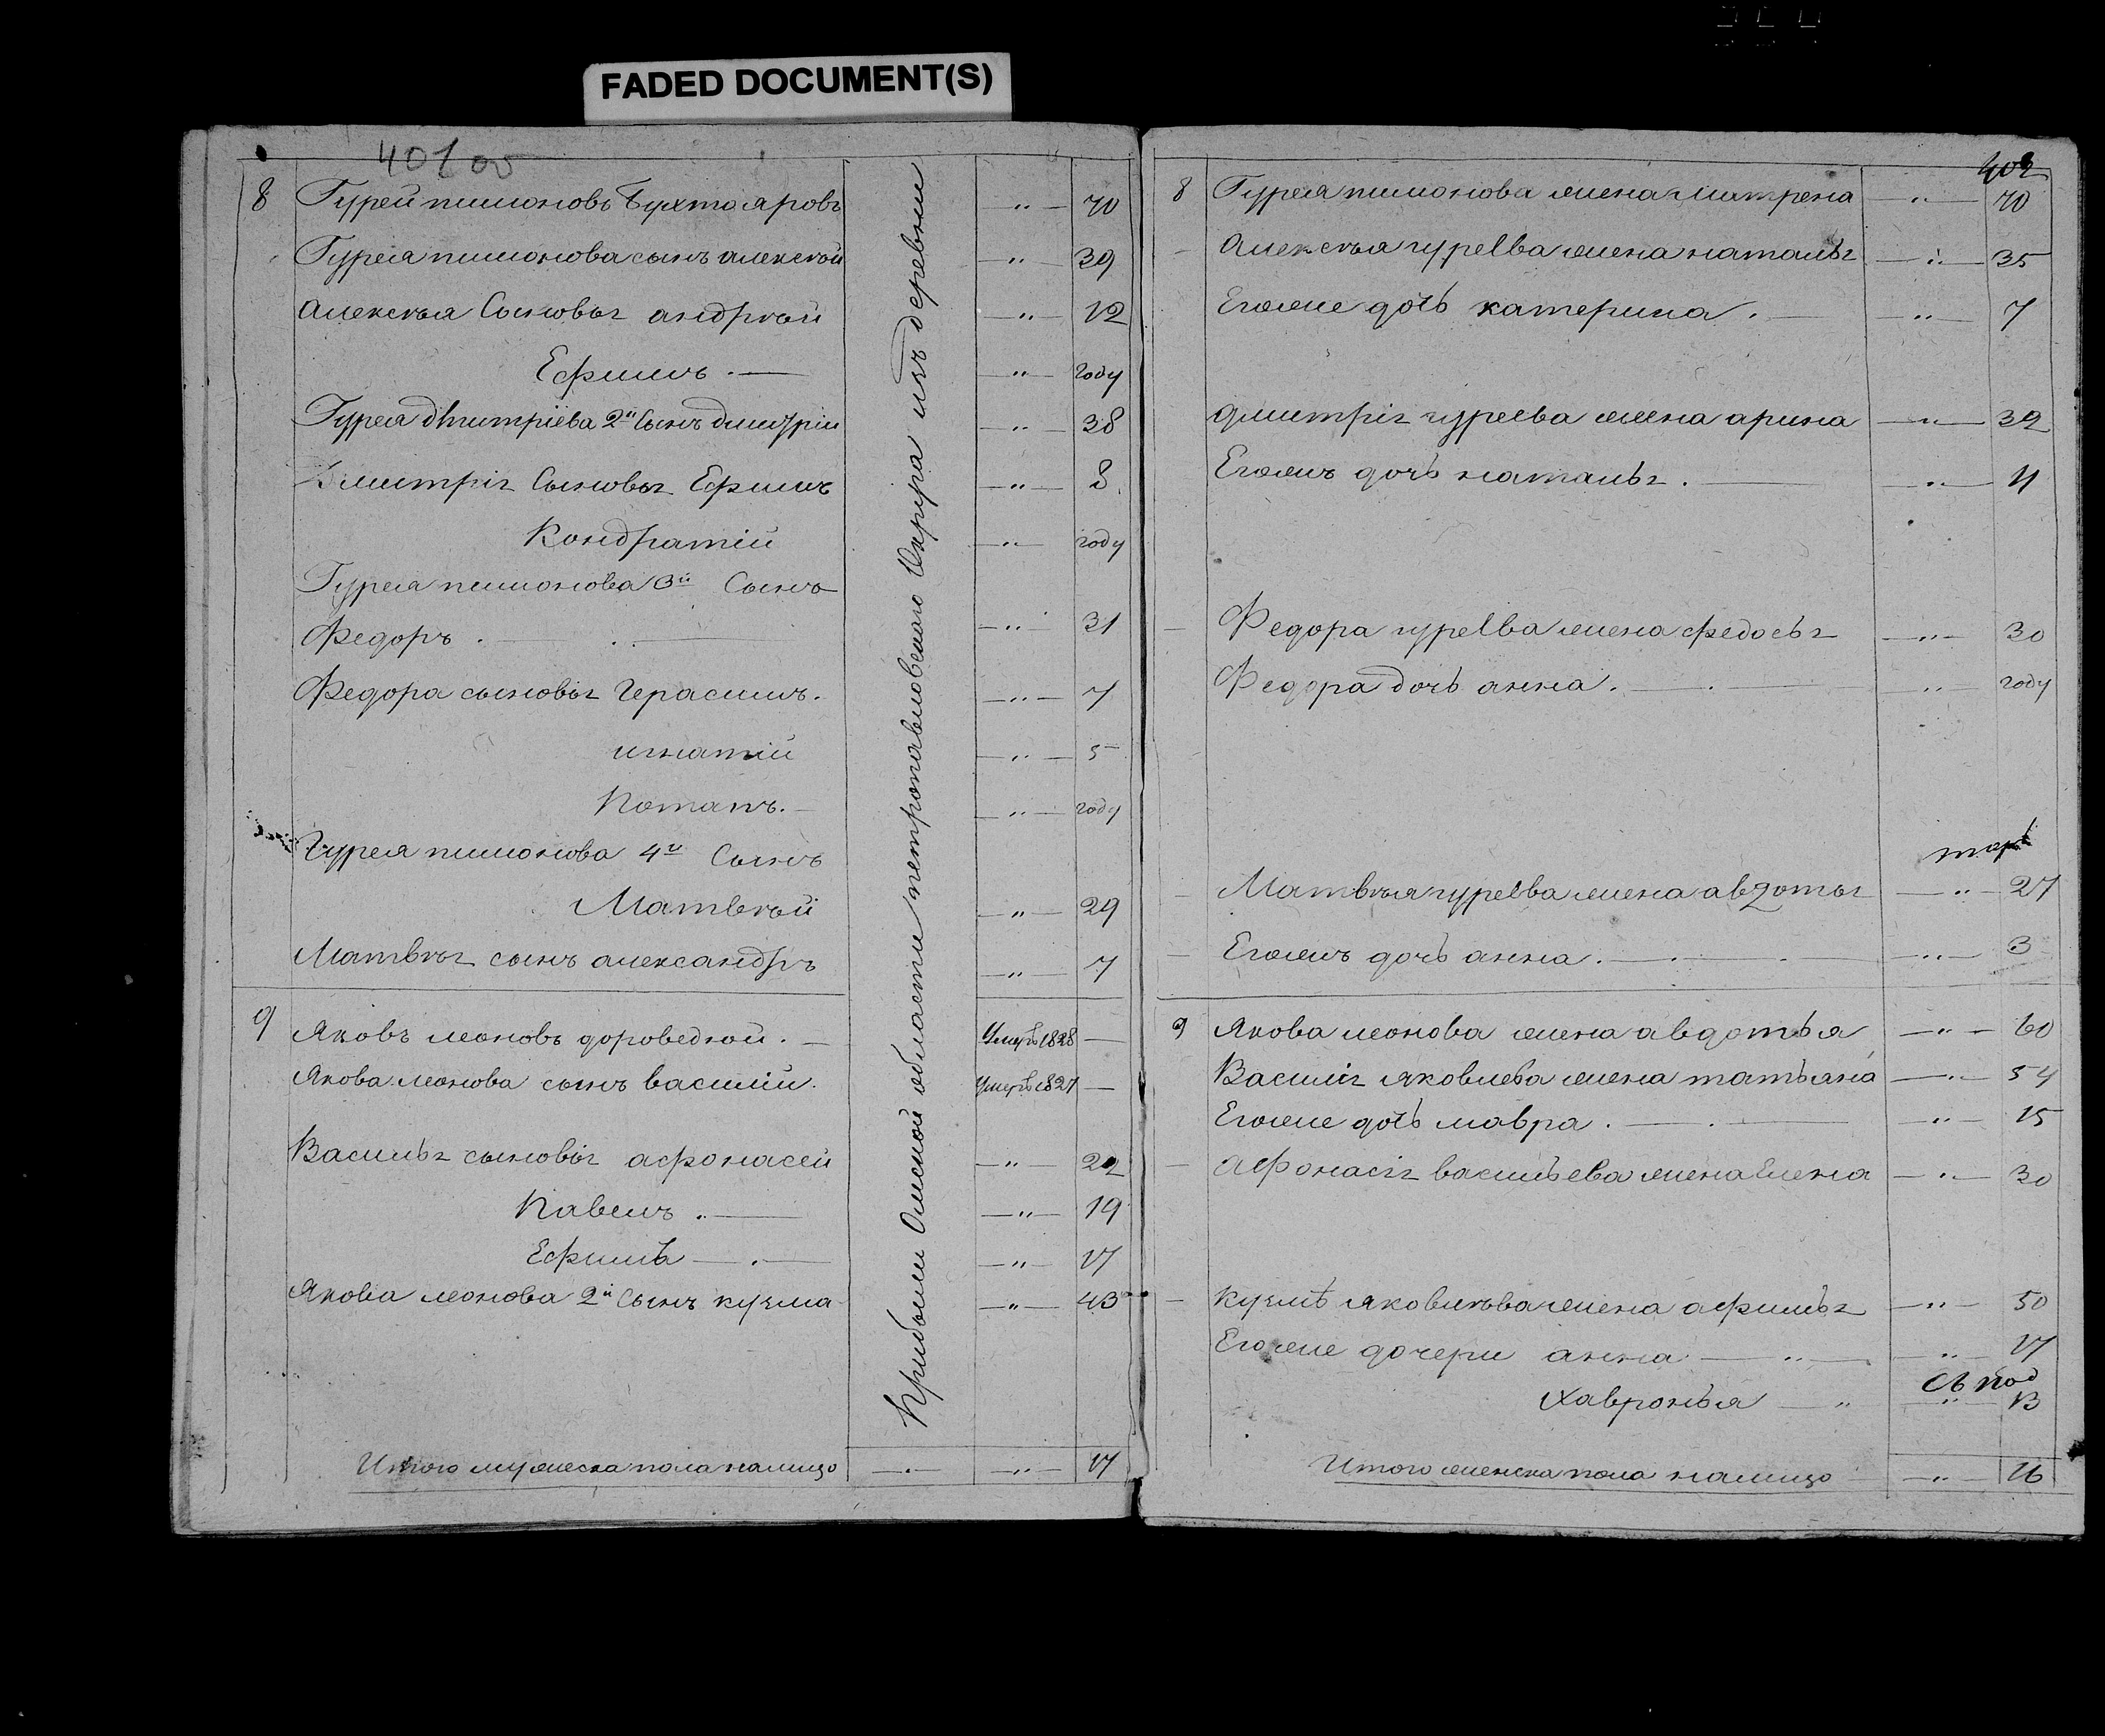 FADED DOCUMENT(S)
401
8 Гурей пимоновъ Бухтояровъ — " — 70
Гурея пимонова сынъ алексѣй — " — 39
алексѣя Сыновьг андрѣй — " — 12
Ефимъ . — — " — году
Гурея дмитріева 2й Сынъ дмитріи — " — 38
Дмитріг Сыновьг Ефимъ — " — 8.
Кондратій — " — году
Гурея пимонова 3й Сынъ
Федоръ . — — " 31
Федора сыновьг Герасимъ. — " — 7
игнатій — " — 5
Потапъ. — — " — году
Гурея пимонова 4й Сынъ
Матвѣй — " — 29
Матвѣг сынъ александръ — " — 7
9 Яковъ леоновъ дороведной. — Умеръ 1828 —
Якова леонова сынъ василіи. Умеръ 1827 —
Васильг сыновьг афонасеи — " — 22
Павелъ . — — " — 19
Ефимъ — . — — " — 17
Якова леонова 2й Сынъ кузма — " — 43
Итого мужеска пола налицо — . — — " — 17
Прибыли Омской области петропавловского Округа изъ деревни
402
8 Гурея пимонова жена матрена — " — 70
алексѣя гурева жена натальг — " — 35
Егоже дочь катерина . — — " — 7
дмитріг гуреева жена арина — " — 32
Егожъ дочь натальг . — — " — 4
Федора гурева жена федосьг — " — 30
Федора дочь анна . — . — " году
Матвѣя гурева жена авдотьг — " — 27
Егожъ дочь анна . — . — — " — 3
9 Якова леонова жена авдотья — " — 60
Василіг яковлева жена татьяна — " — 54
Егоже дочь мавра . — . — — " — 15
афонасіг васильева жена Елена — " — 30
кузмѣ яковлѣва жена афимьг — " — 50
Егоже дочери анна — " — " — 17
Хавронья — " — " — 13
Итого женска пола налицо — " — 16